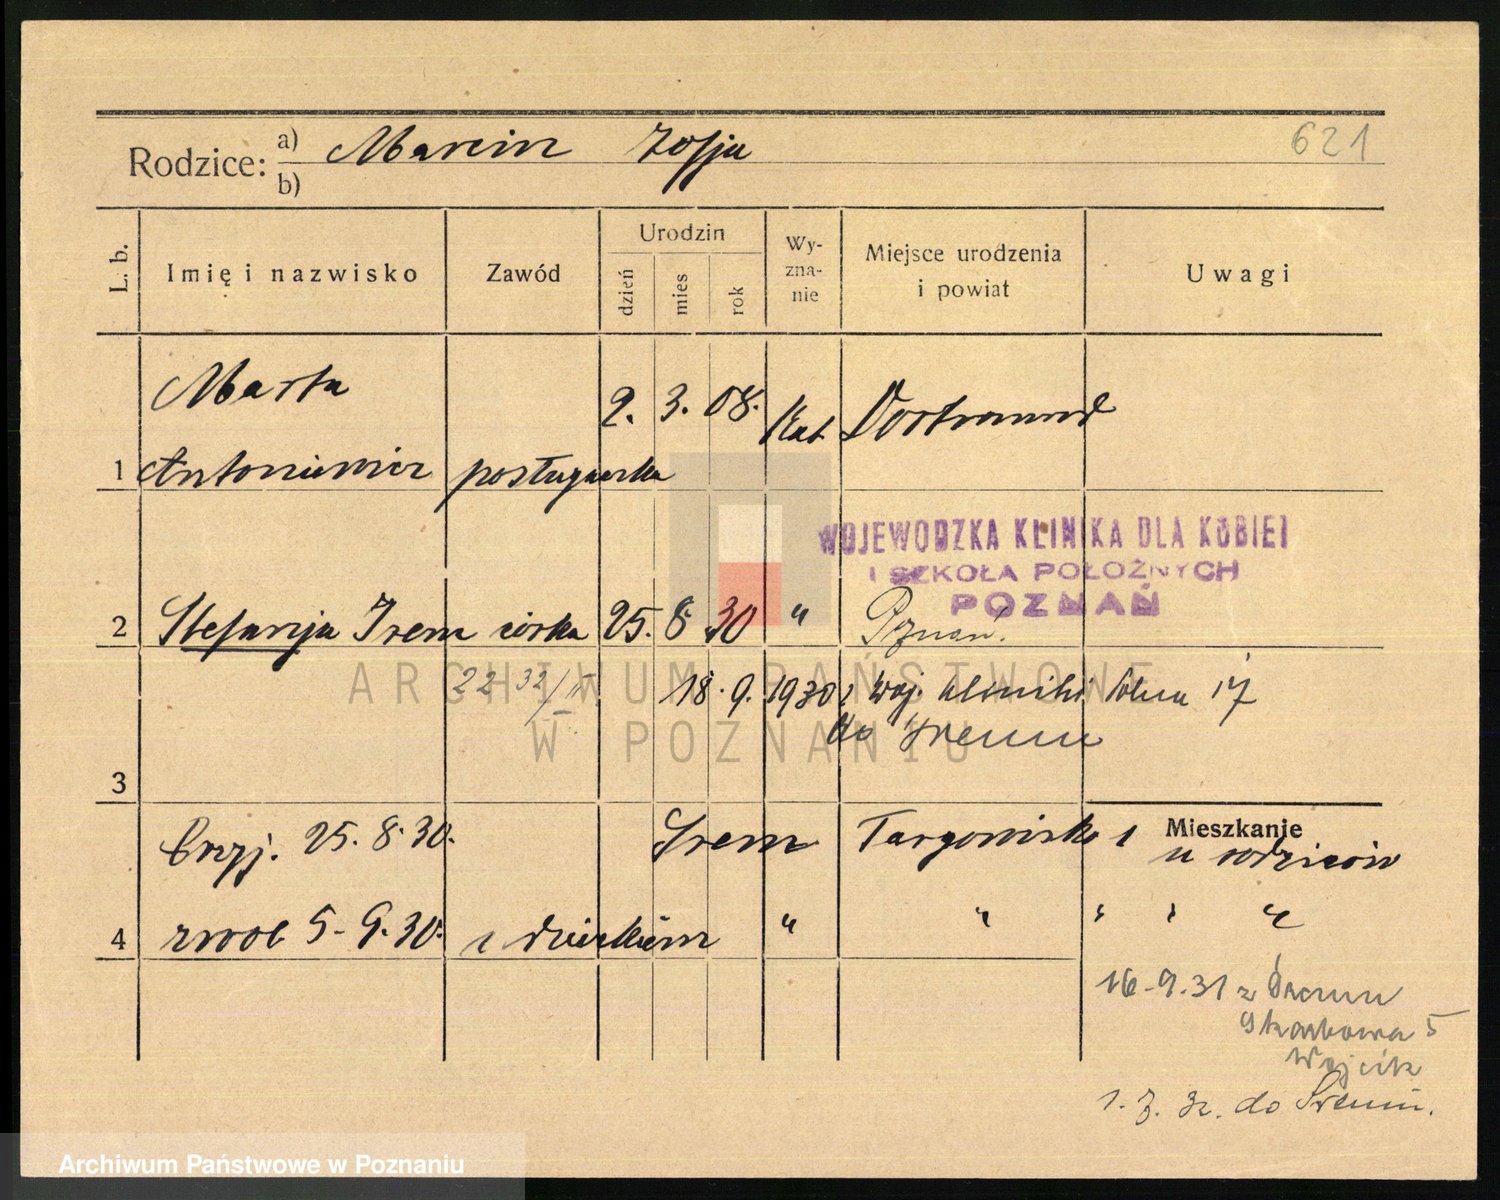 621
Rodzice: a) Marcin Zofja
b)
L. b. Imię i nazwisko Zawód Urodzin dzień mies rok Wy-zna-nie Miejsce urodzenia i powiat Uwagi
Marta
2. 3. 08. Kat Dortmund
1 Antoniewicz posługaczka
WOJEWODZKA KLINIKA DLA KOBIET
I SZKOŁA POŁOŻNYCH
POZNAŃ
2 Stefanja Irena córka 25. 8 30 " Poznań.
22 32/III 18. 9. 1930 z Woj. kliniki 17
do Śremu
3
Przyj. 25. 8. 30. Śrem Targowisko 1 Mieszkanie
u rodziców
4 zwol 5. 9. 30. z dzieckiem " " " " "
16. 9. 31 z Śremu
Skarbowa 5
Wojcik
1. 3. 32. do Śremu.
ARCHIWUM PAŃSTWOWE
W POZNANIU
Archiwum Państwowe w Poznaniu